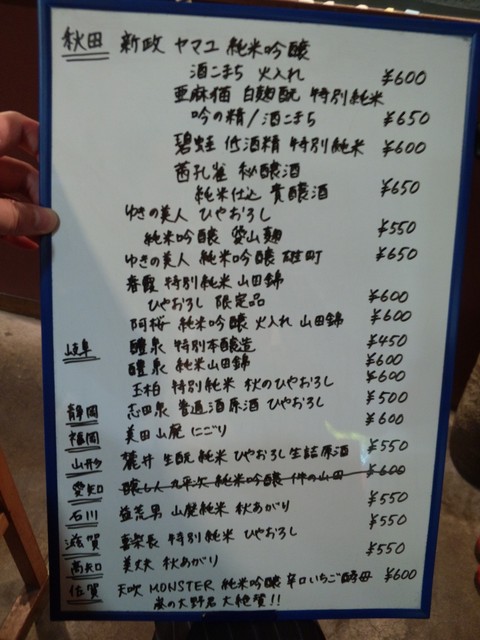 秋田 新政 ヤマユ 純米吟醸
酒こまち 火入れ ¥600
亜麻猫 白麹酛 特別純米
吟の精/酒こまち ¥650
碧蛙 低酒精 特別純米 ¥600
茜孔雀 秘醸酒
純米仕込 貴醸酒 ¥650
ゆきの美人 ひやおろし
純米吟醸 愛山麹 ¥550
ゆきの美人 純米吟醸 雄町 ¥650
春霞 特別純米 山田錦
ひやおろし 限定品 ¥600
阿桜 純米吟醸 火入れ 山田錦 ¥600
岐阜 醴泉 特別本醸造 ¥450
醴泉 純米山田錦 ¥600
玉柏 特別純米 秋のひやおろし ¥600
静岡 志田泉 普通酒原酒 ひやおろし ¥500
福岡 美田 山廃 にごり ¥600
山形 麓井 生酛 純米 ひやおろし生詰原酒 ¥550
愛知 醸し人 九平次 純米吟醸 件の山田 ¥600
石川 益荒男 山廃純米 秋あがり ¥550
滋賀 喜楽長 特別純米 ひやおろし ¥550
高知 美丈夫 秋あがり ¥550
佐賀 天吹 MONSTER 純米吟醸 辛口いちご酵母 ¥600
の大野君 大絶賛!!